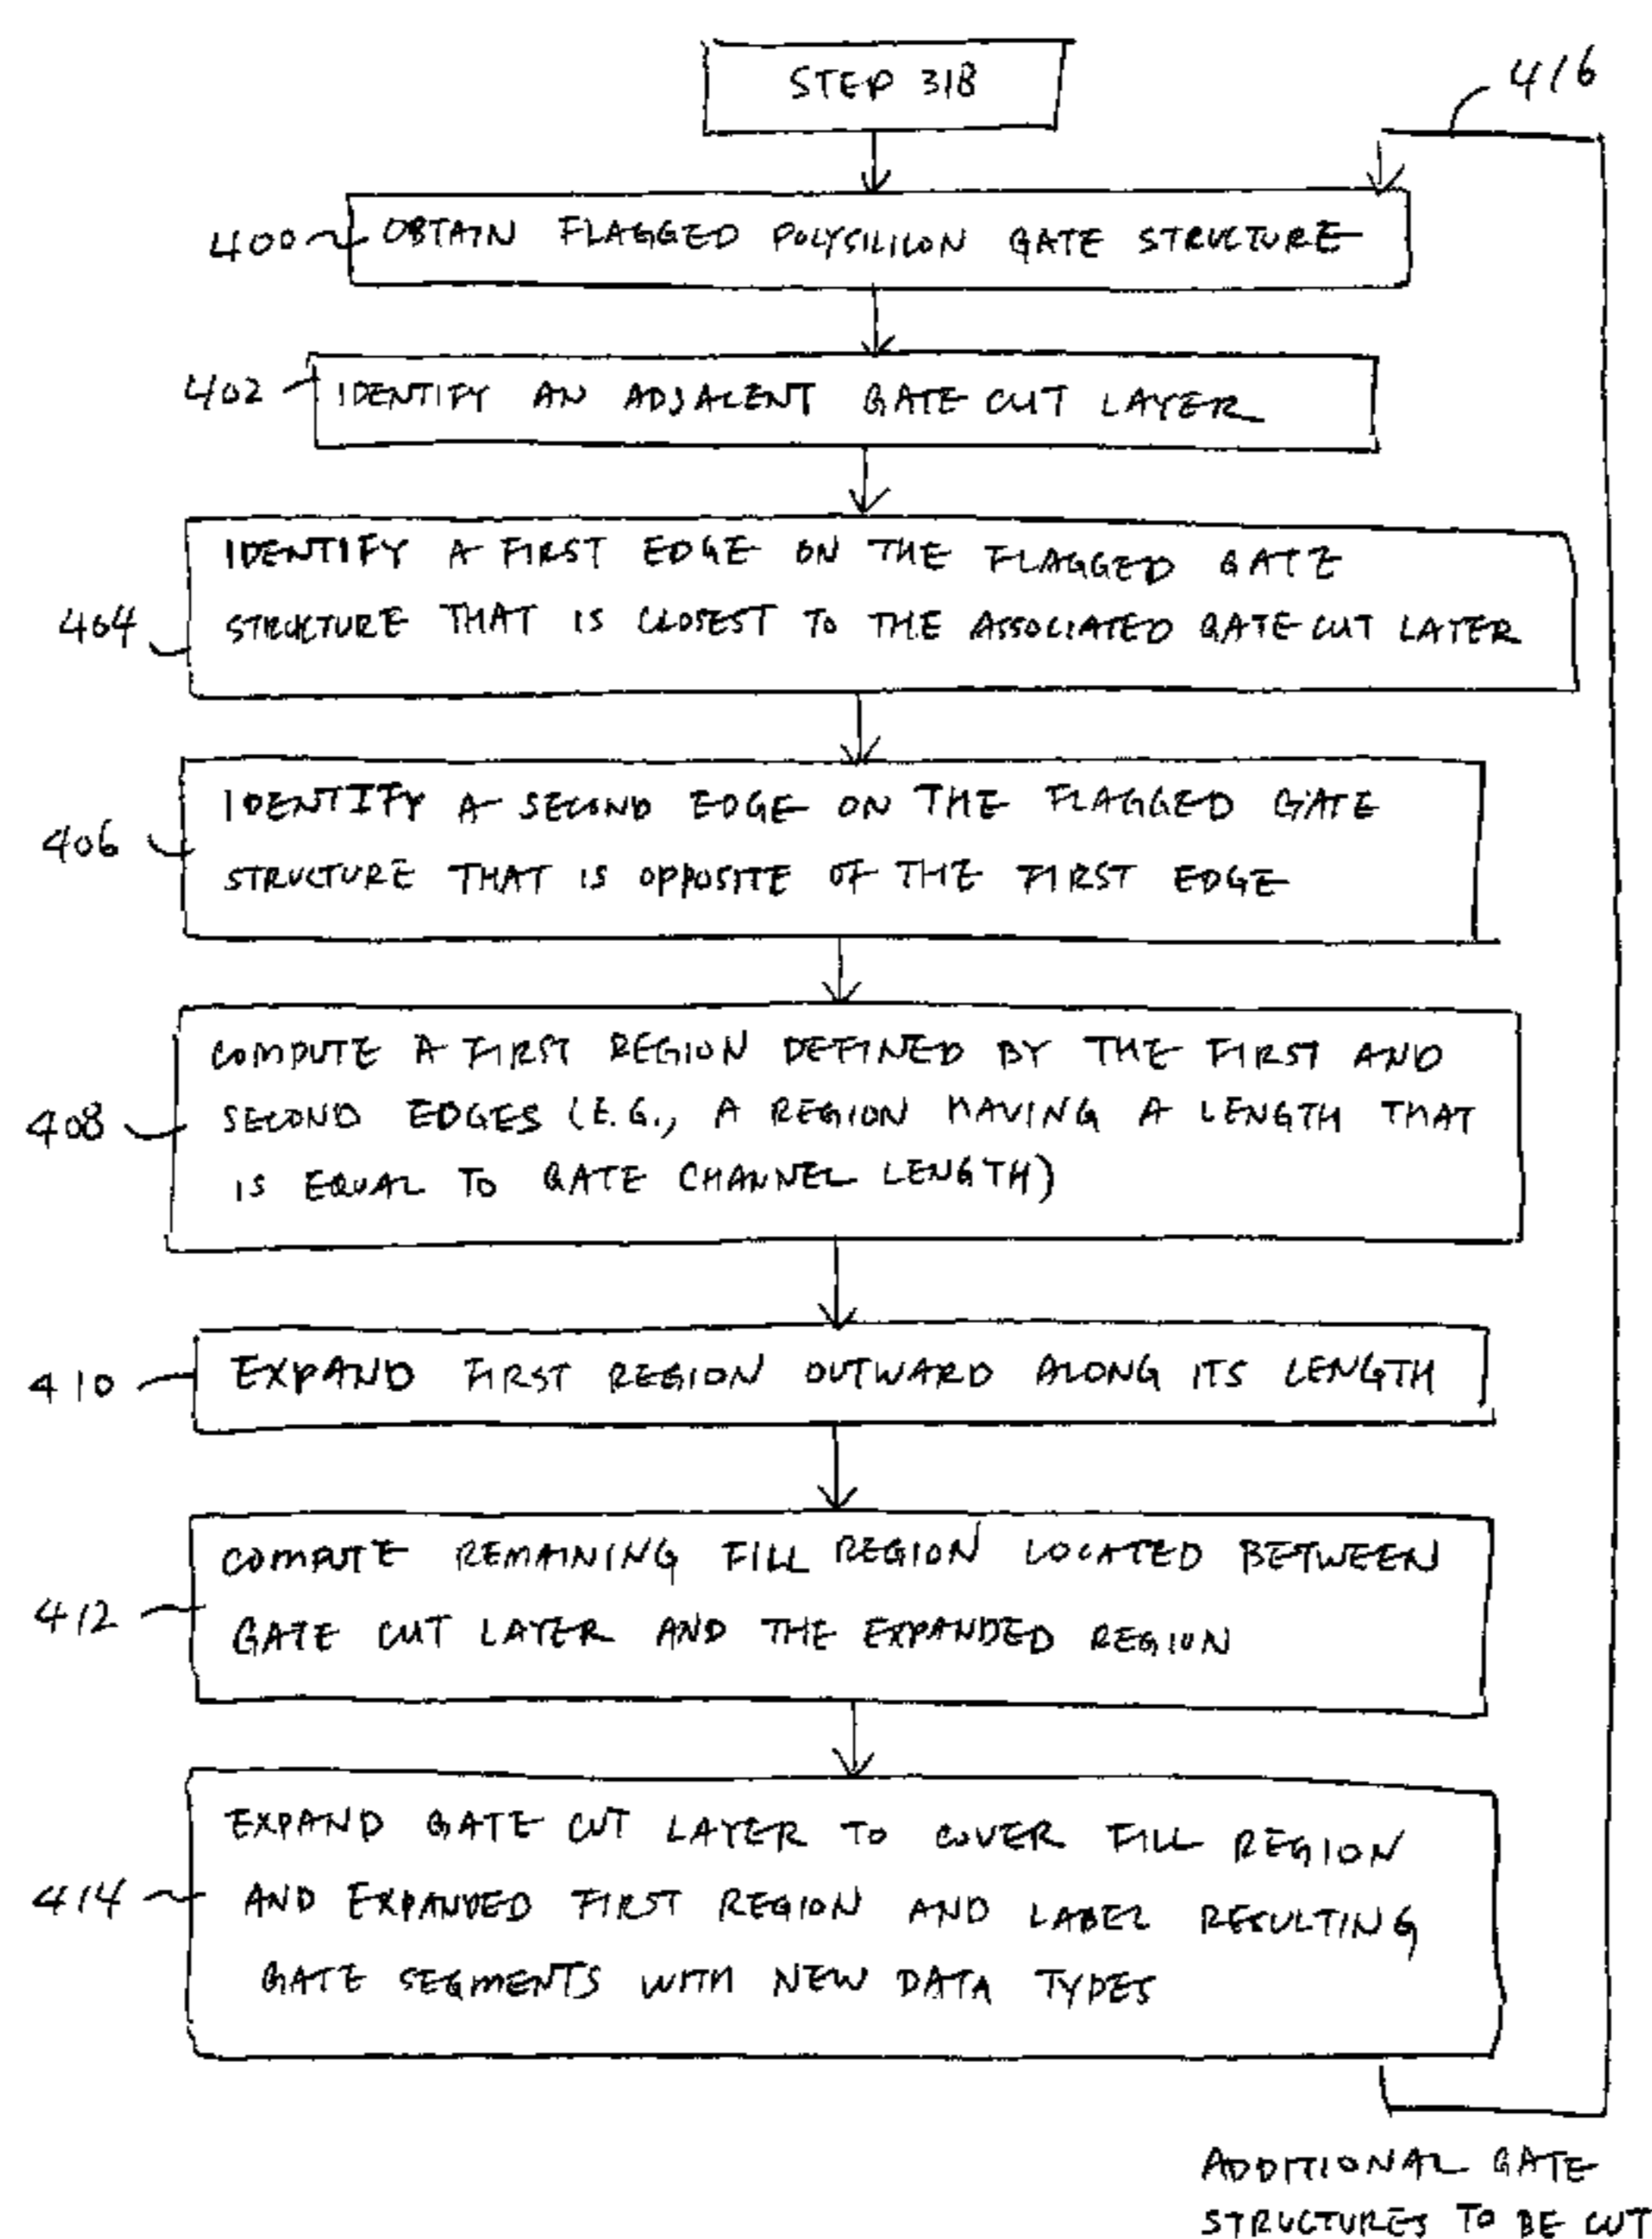 STEP 318
416
400
OBTAIN FLAGGED POLYSILICON GATE STRUCTURE
402
IDENTIFY AN ADJACENT GATE CUT LAYER
404
IDENTIFY A FIRST EDGE ON THE FLAGGED GATE
STRUCTURE THAT IS CLOSEST TO THE ASSOCIATED GATE CUT LAYER
406
IDENTIFY A SECOND EDGE ON THE FLAGGED GATE
STRUCTURE THAT IS OPPOSITE OF THE FIRST EDGE
408
COMPUTE A FIRST REGION DEFINED BY THE FIRST AND
SECOND EDGES (E.G., A REGION HAVING A LENGTH THAT
IS EQUAL TO GATE CHANNEL LENGTH)
410
EXPAND FIRST REGION OUTWARD ALONG ITS LENGTH
412
COMPUTE REMAINING FILL REGION LOCATED BETWEEN
GATE CUT LAYER AND THE EXPANDED REGION
414
EXPAND GATE CUT LAYER TO COVER FILL REGION
AND EXPANDED FIRST REGION AND LABEL RESULTING
GATE SEGMENTS WITH NEW DATA TYPES
ADDITIONAL GATE
STRUCTURES TO BE CUT